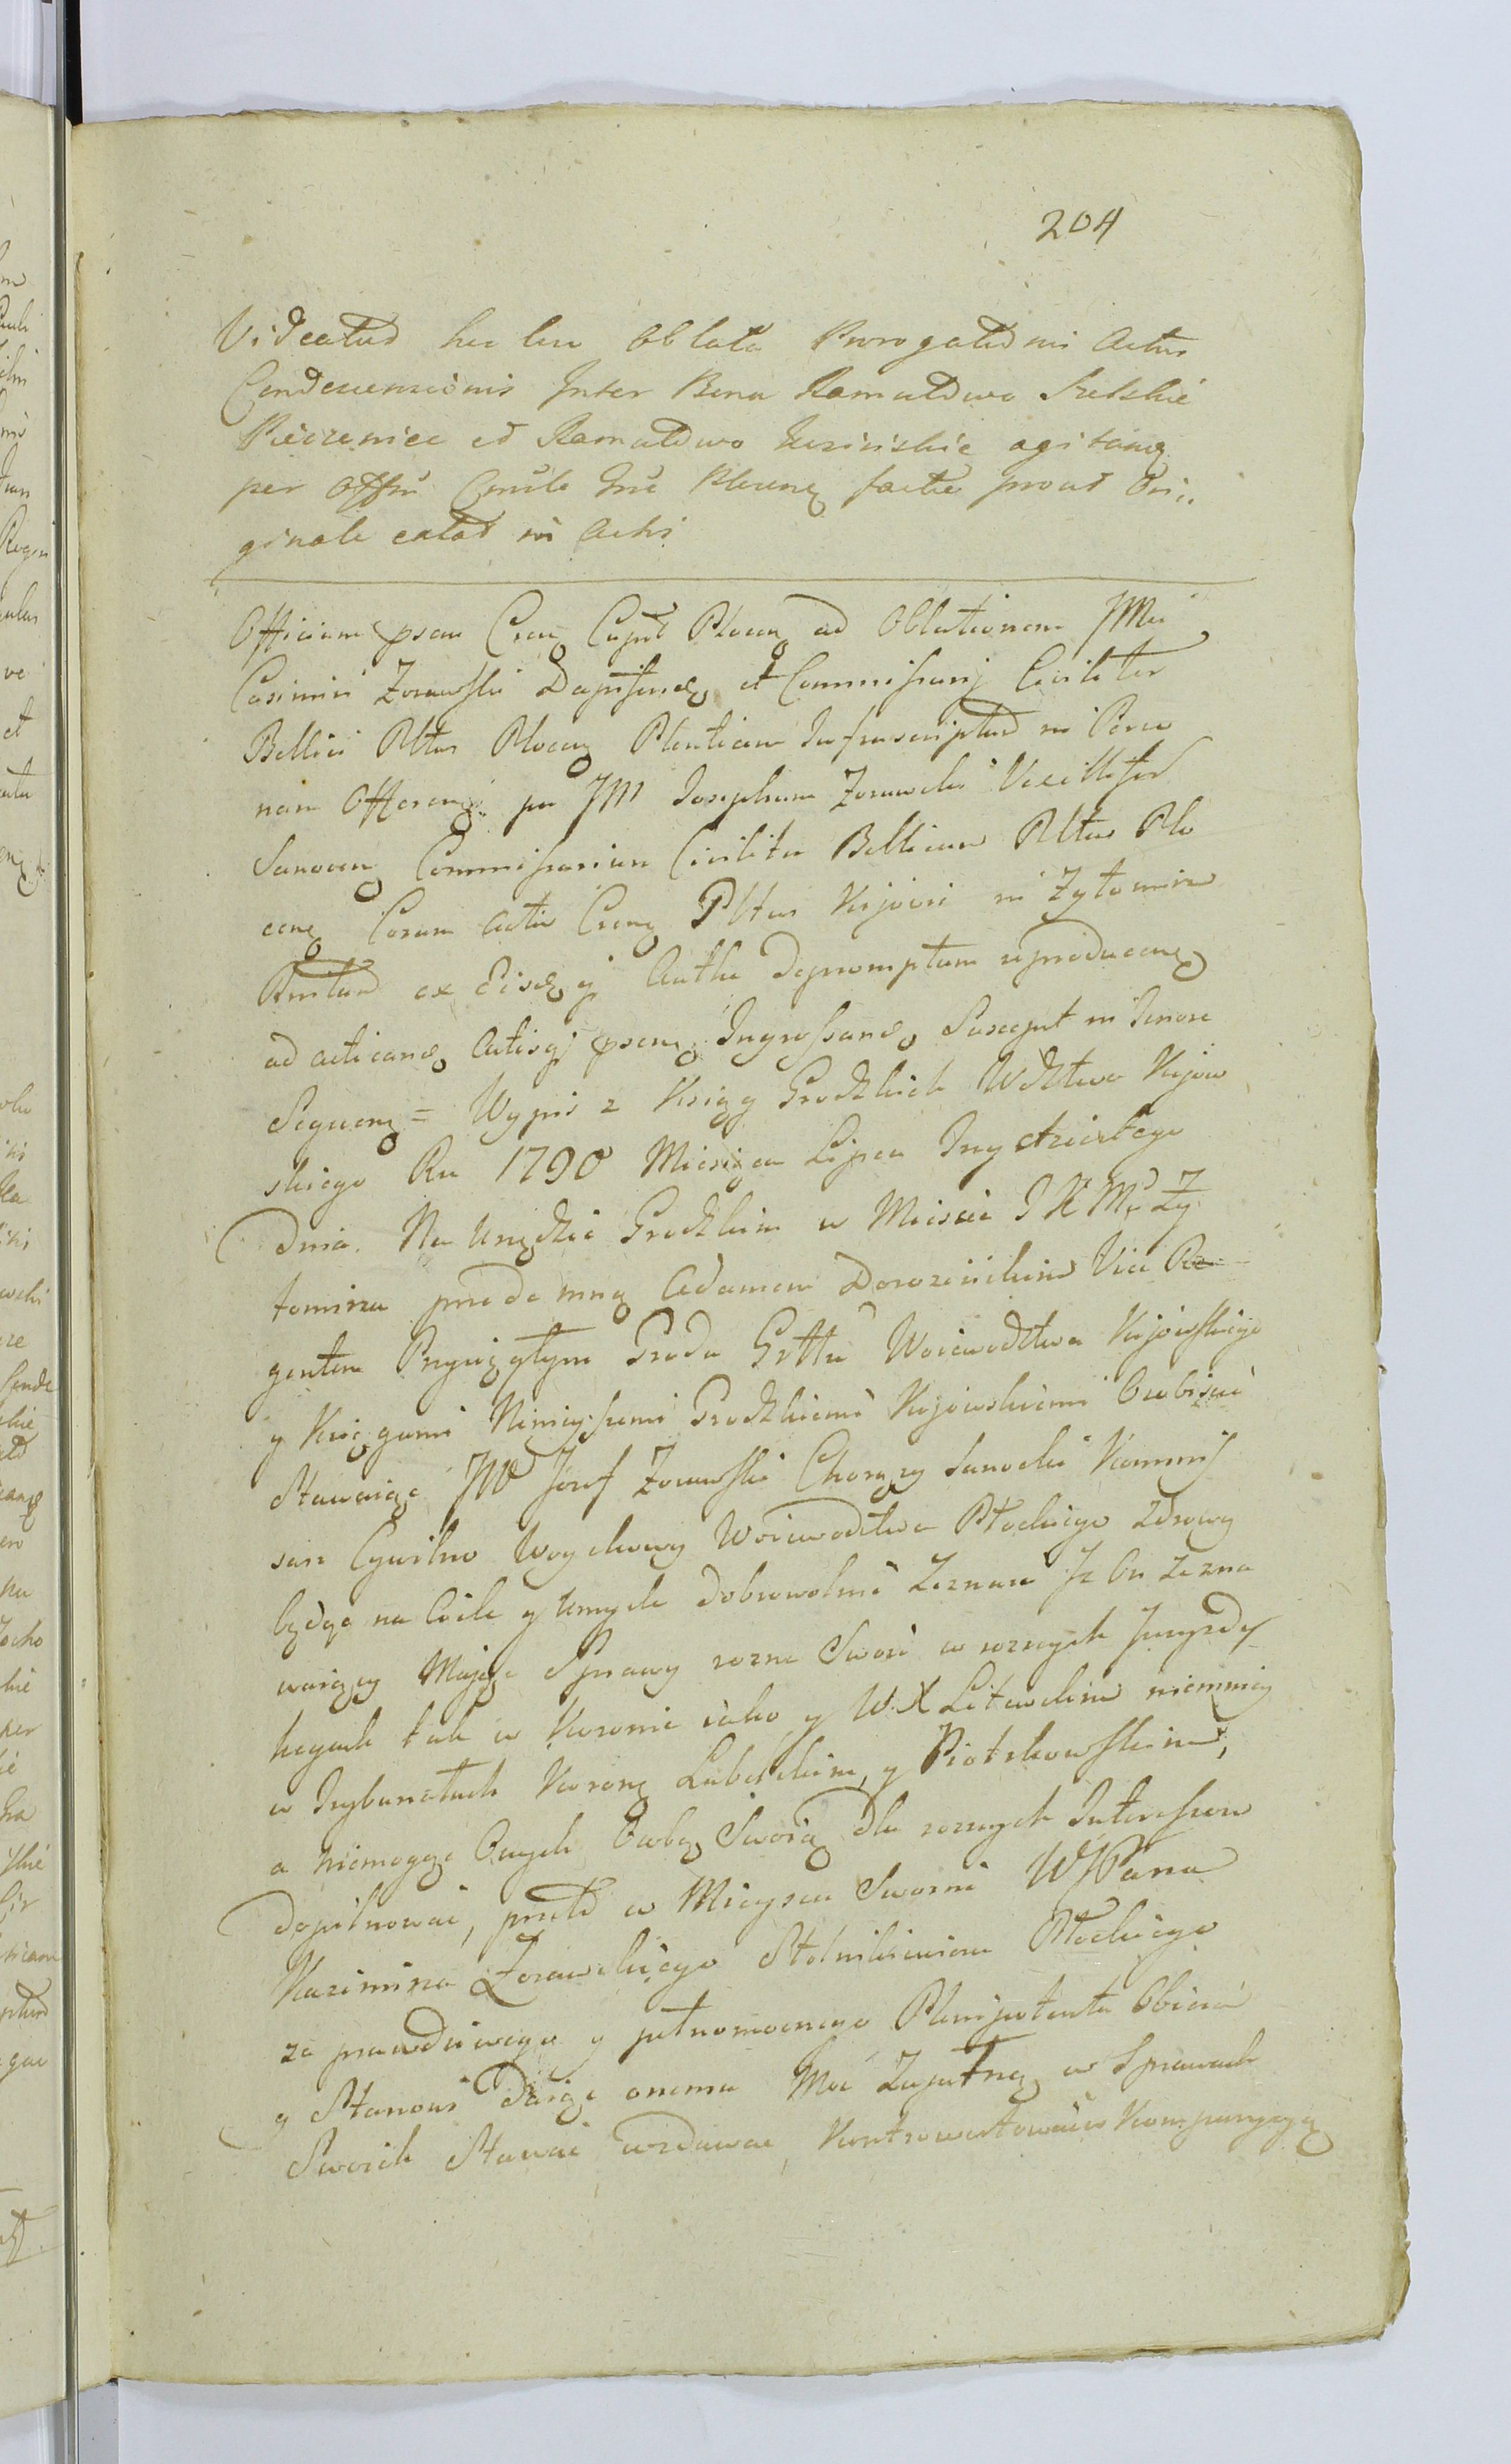 204
Videatur hic loci Oblata Prorogationis Actus
Condescensionis Inter Bona Ramułtowo
et Ramułtowo agitang
per Offm factae prout Ori„
ginale extat in Actis
Officium psens Crens Capit Plocen ad Oblationem JMci
Casimiri Zorawski et Commissarij Civiliter
Bellici Pltus Plocen Plenticam Infrascriptam in Perso
nam Offeren„ per JM Josephum Zorawski Vexillifer
Sanocen Commissarium Civiliter Bellicum Pltus Plo
cen Coram Actis Crens Pltus Kijovi in Zytomirz
ex Actis depromptum reproducens
ad acticand Actisq psen Ingrossand Suscepit in Tenore
Sequen = Wypis z Xsiąg Grodzkich Wdztwa Kijow
skiego Ru 1790 Miesiąca Lipca Trzydziestego
Dnia. Na Urzędzie Grodzkim w Miescie J K Mci Zy
tomirzu przede mną Adamem Dorozinskim Vice Re
gentem Przysięgłym Grodu Gnłłu Woiewodztwa Kijowskiego
y Xsięgami Ninieyszemi Grodzkiemi Kijowskiemi Osobiscie
Stawaiąc JW Jozef Zorawski Chorązy Sanocki Kommis
sarz Cywilno Woyskowy Woiewodztwa Płockiego zdrowy
będąc na Ciele y Umysle dobrowolnie Zeznał Iz On Zezna
waiący Maiąc Sprawy rozne Swoie w roznych Juryzdy
kcyach tak w Koronie iako y W. X Litewskim niemniey
w Trybunałach Koron Lubelskim, y Piotrkowskim,
a niemogąc Onych Osobą Swoią dla roznych Interessow
dopilnować, przeto w Mieyscu Swoim WJPana
Kazimirza Zorawskiego Stolnikiewicza Płockiego
za prawdziwego y pełnomocnego Plenipotenta Obiera
y Stanowi daiąc onemu Moc Zupełną w Sprawach
Swoich Stawać Kontrowertować